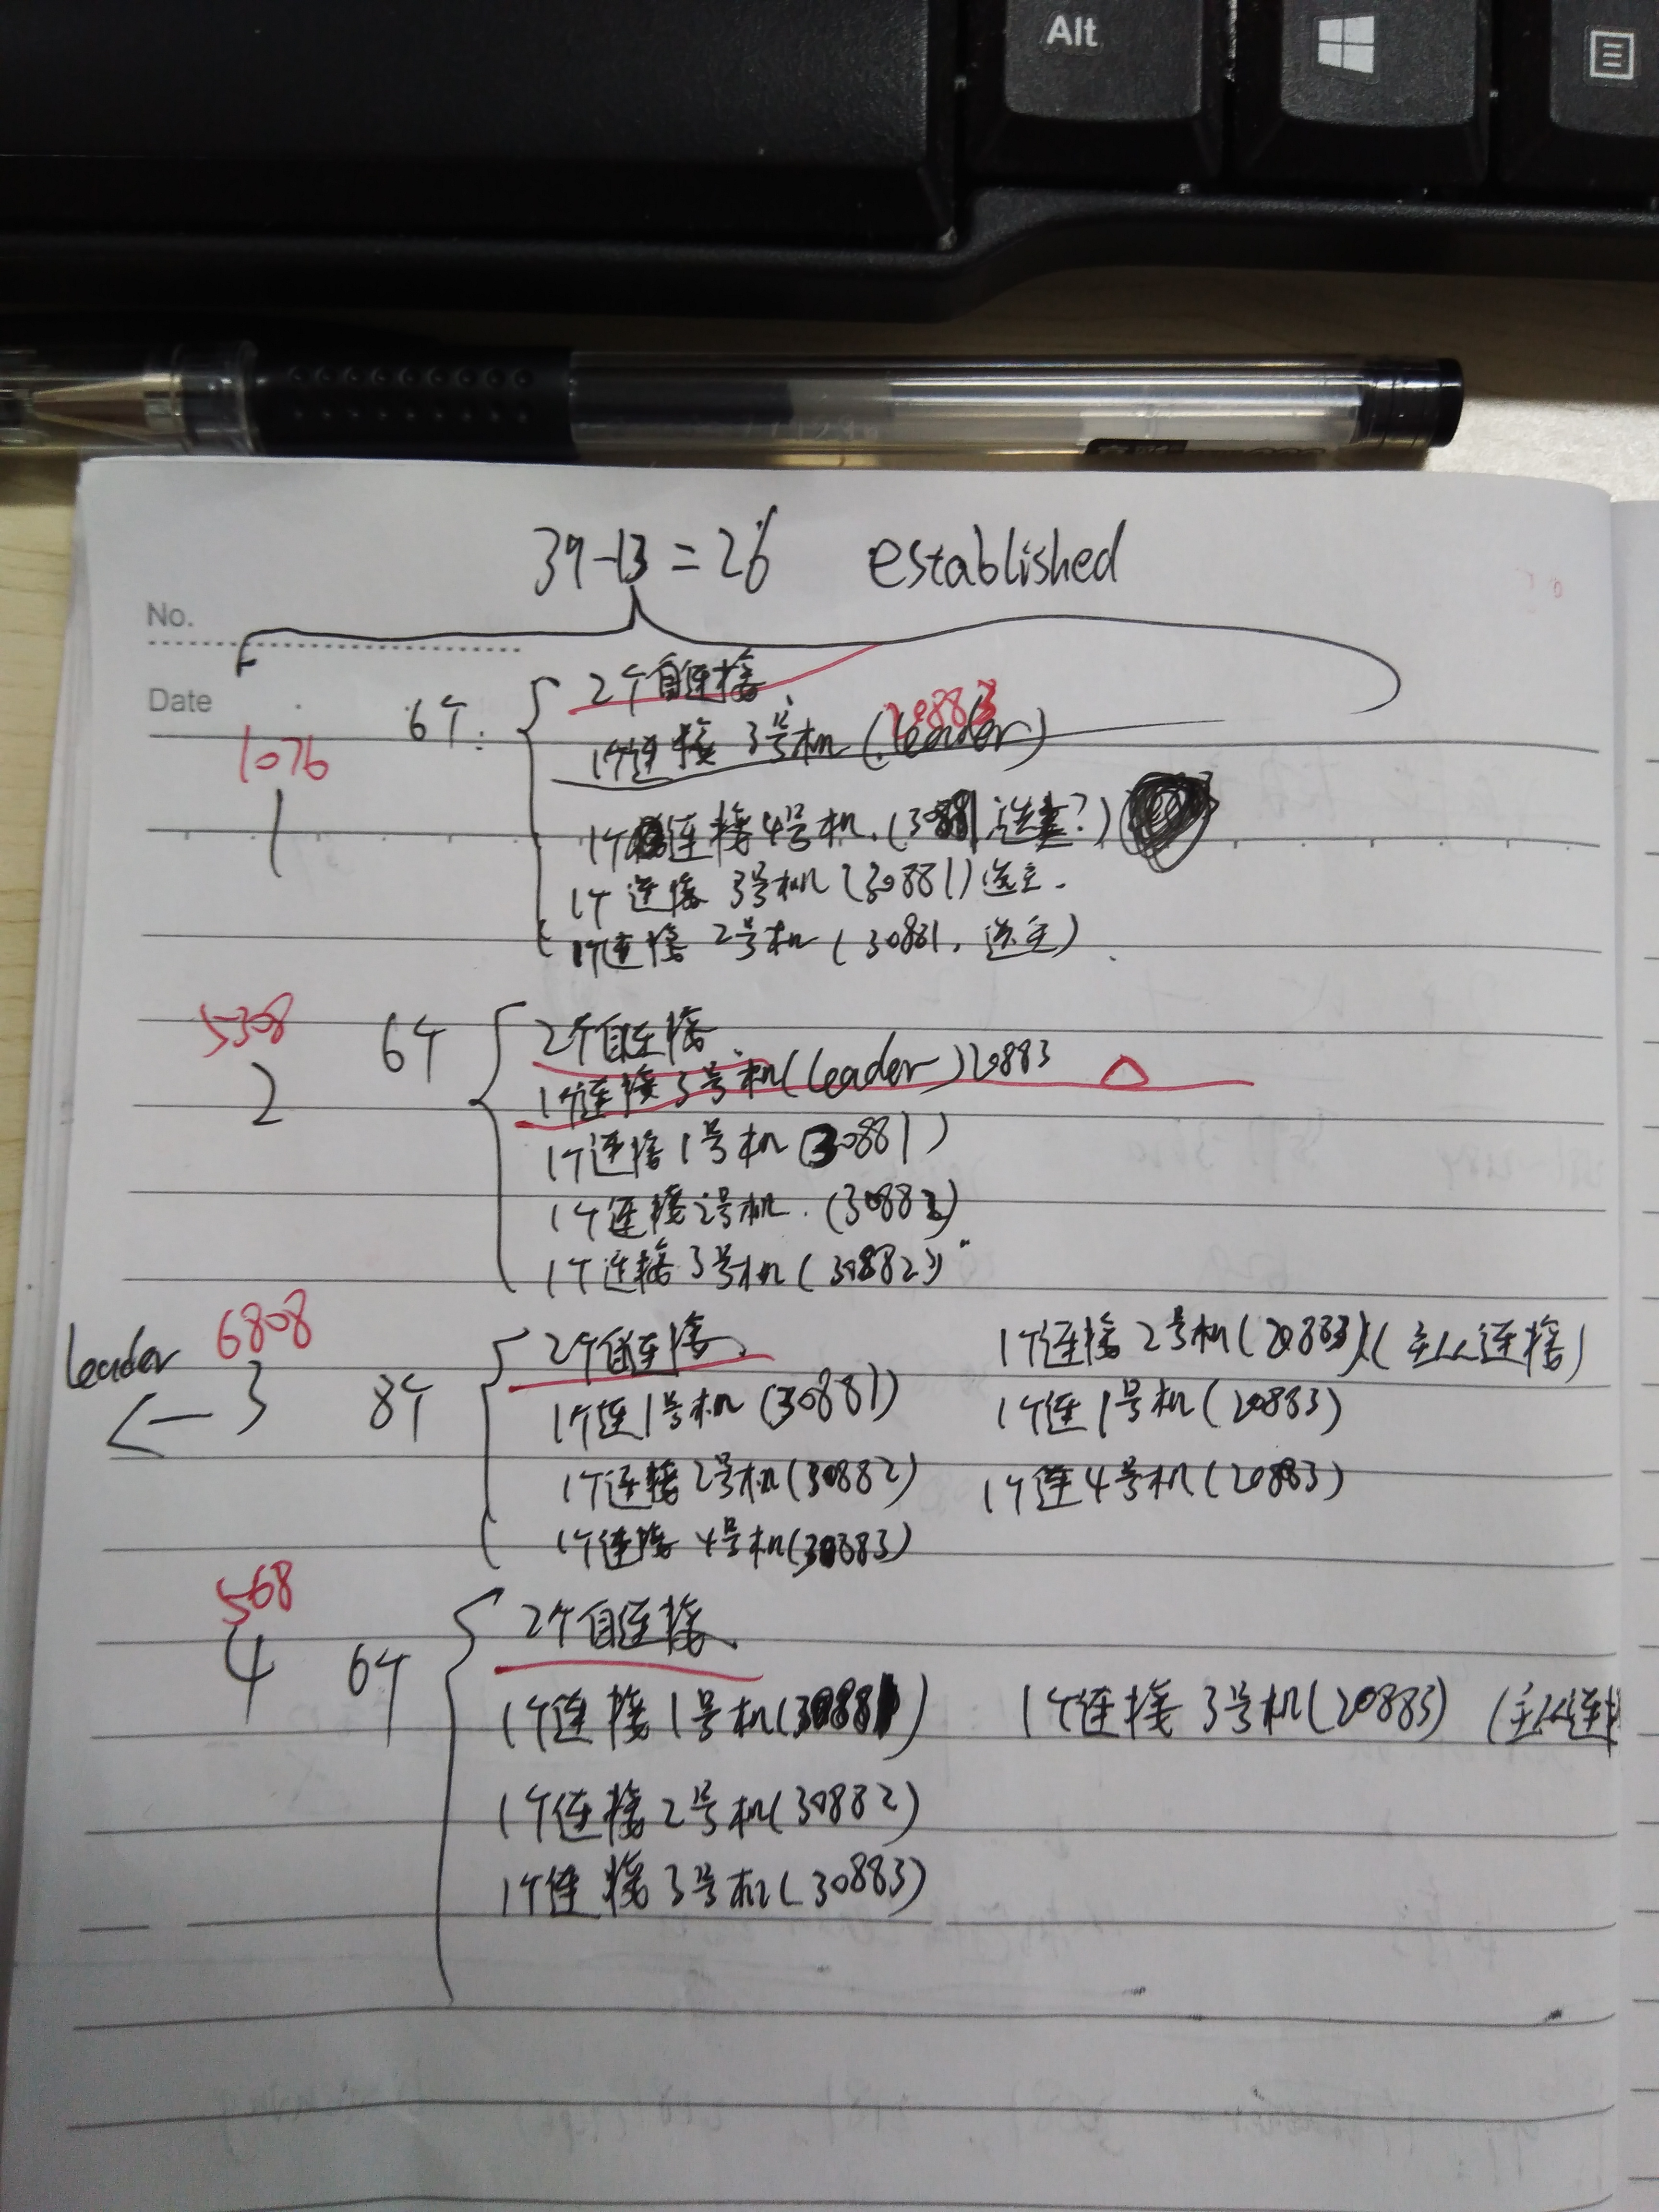 Alt
39-13=26 established
No.
Date
1076
1
6个:
2个自连接
1个连接 3号机 (leader) 20883
1个连接4号机.(30881 选主?)
1个连接 3号机 (30881) 选主.
1个连接 2号机 (30881, 选主)
5308
2
6个
2个自连接
1个连接3号机(leader)20883
1个连接1号机(30881)
1个连接2号机.(30882)
1个连接3号机(30882)
leader
6808
3
8个
2个自连接 1个连接2号机(20883)(主从连接)
1个连1号机(30881) 1个连1号机(20883)
1个连接2号机(30882) 1个连4号机(20883)
1个连接4号机(30883)
568
4
6个
2个自连接
1个连接1号机(30881) 1个连接3号机(20883) (主从连接
1个连接2号机(30882)
1个连接3号机(30883)